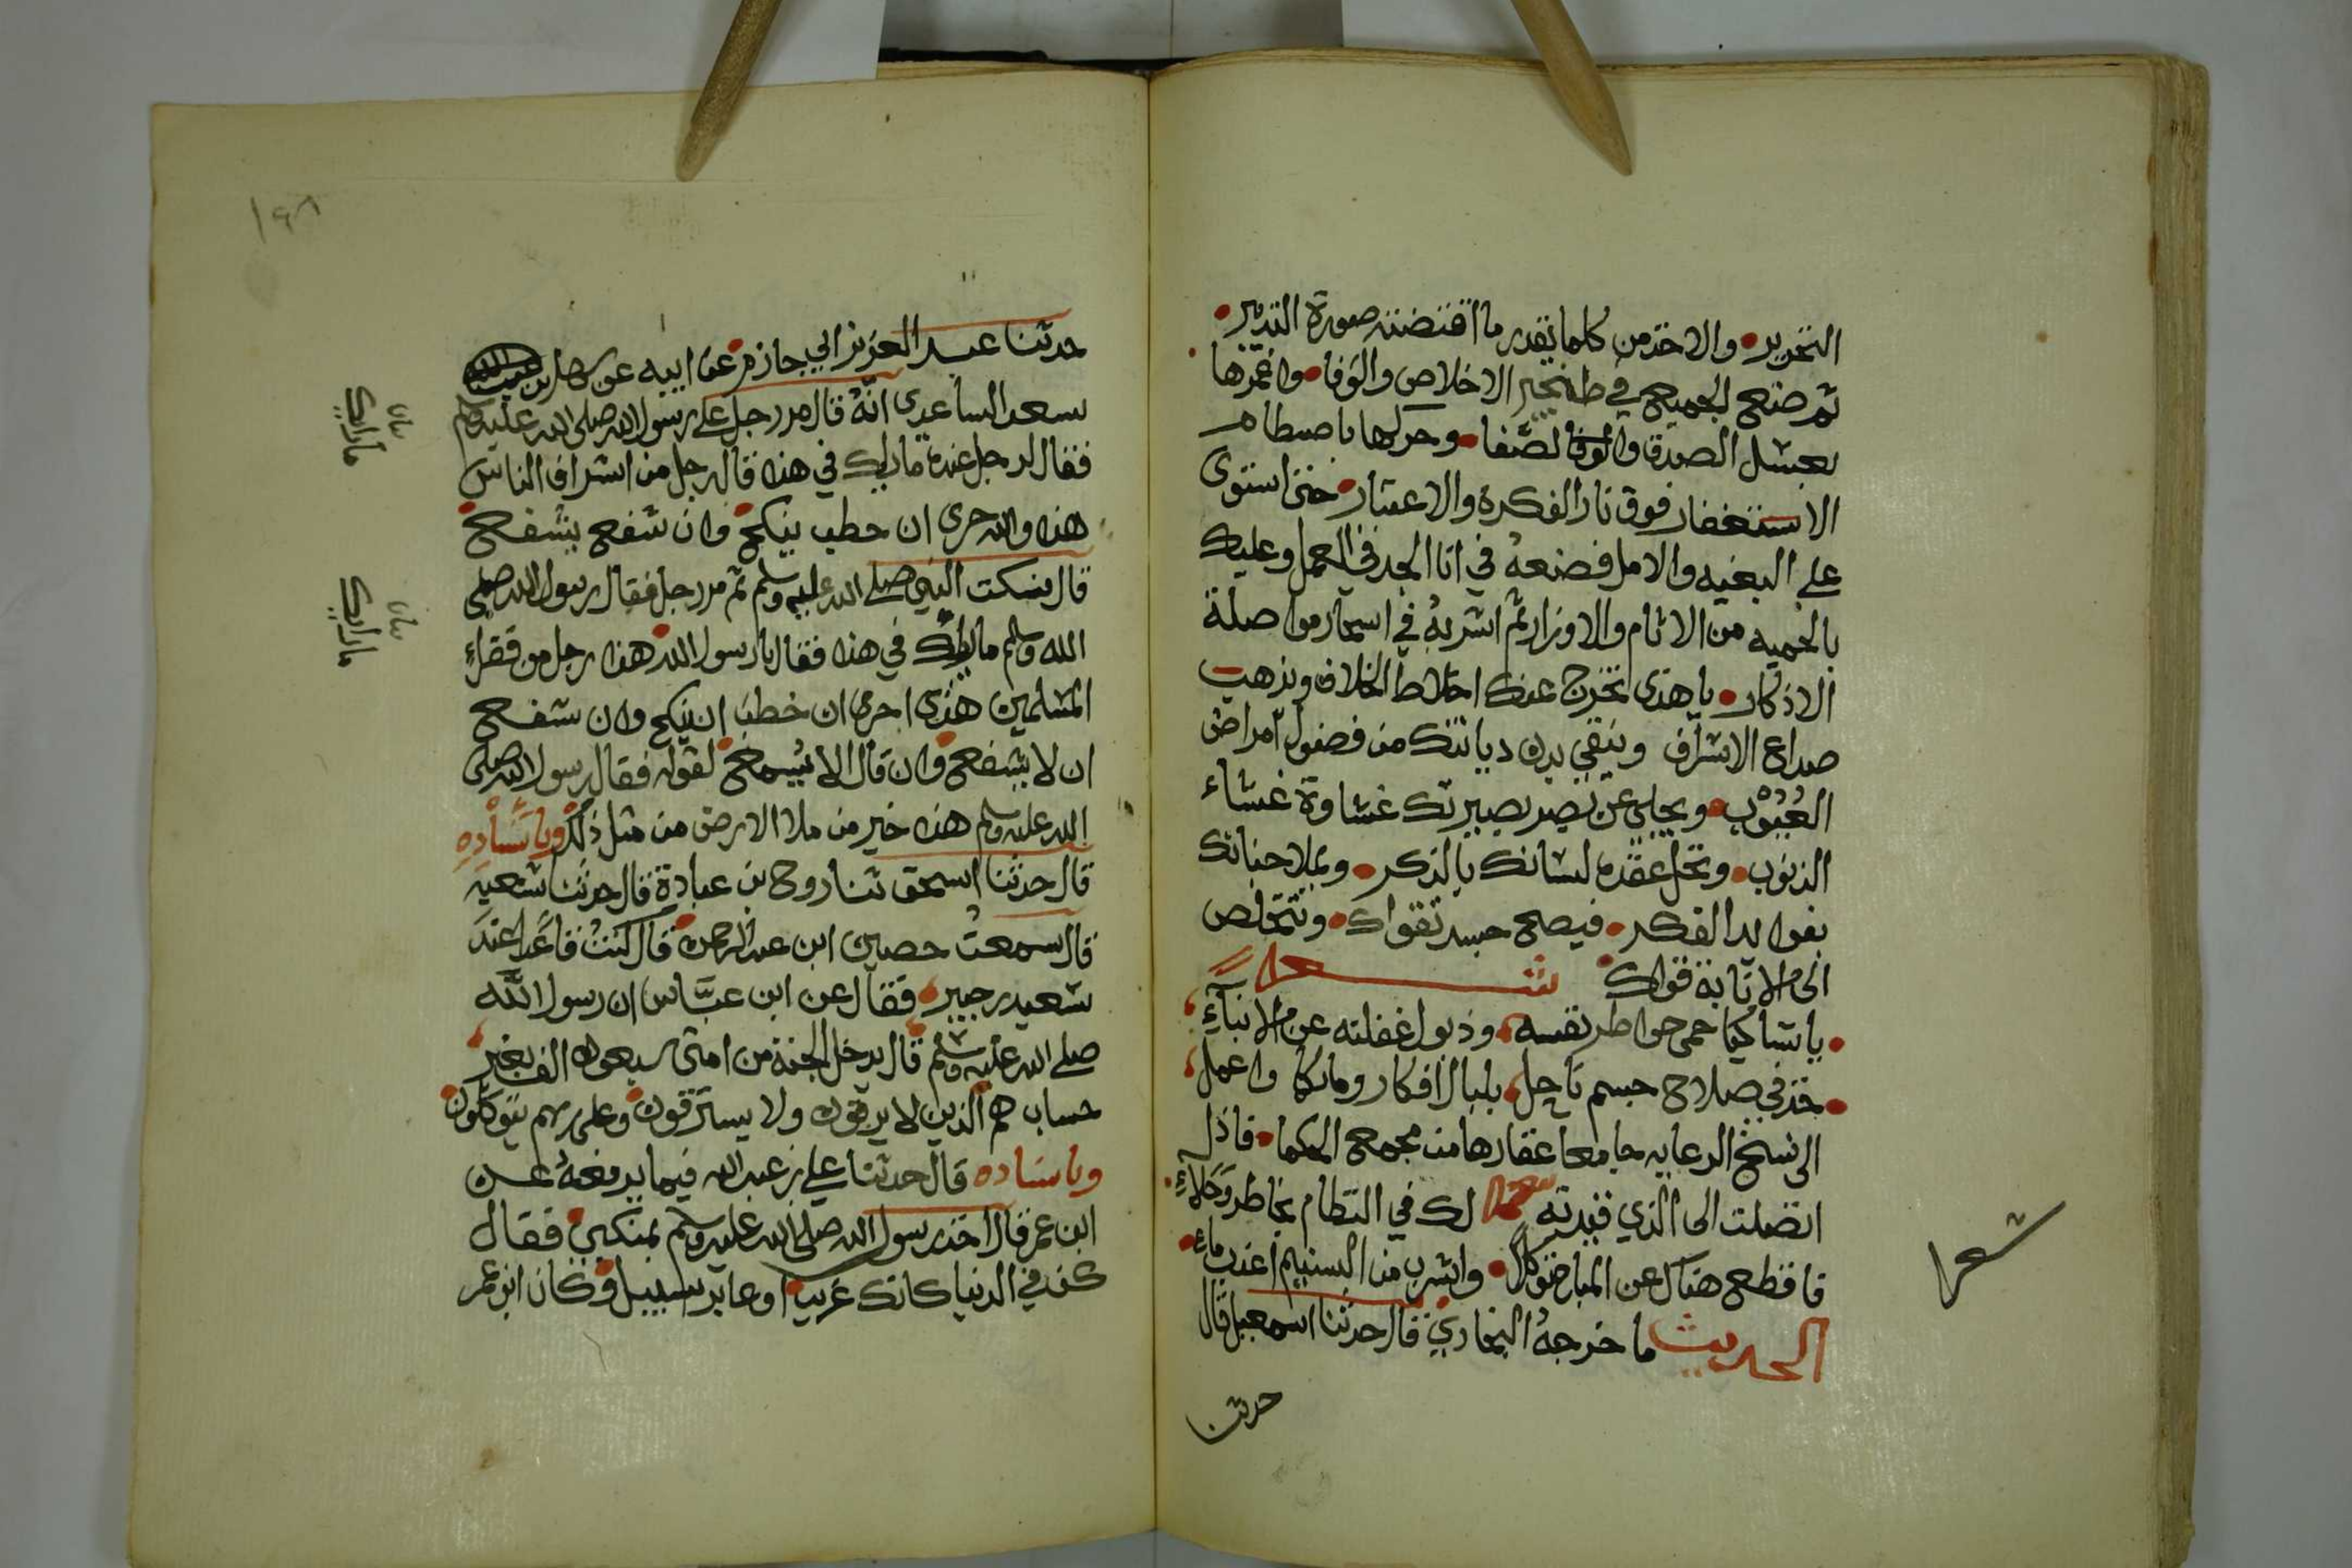 التحرير والاخذ من كلها بقدر ما اقتضته صورة التدبير
ثم ضع الجميع في طنجير الاخلاص والوفا واغمرها
بعسل الصدق والوفا لصفا وحركها باصطام
الاستغفار فوق نار الفكرة والاعتبار حتى استوى
على البغيه والامل فضعه في انا الجد في العمل وعليك
بالحميه من الاثام والاوزار ثم اشربه في اسحار مواصلة
الاذكار يا هذى تخرج عنك اخلاط الخلاف ويذهب
صداع الاشراف وينقى بدن ديانتك من فضول امراض
العيوب ويجلى عن بصر بصيرتك غشاوة غشاء
الذنوب وتحل عقده لسانك بالذكر ويملا جنانك
بفوايد الفكر فيصح جسد تقواك وتتخلص
الى الانابة قواك شعر
يا شاكيا حمى خواطر نفسه وذبول غفلته عن الانباء
خذ في صلاح جسم ناحل بلبال افكار وماكا واعمل
الى نسخ الرعايه جامعا عقارها من مجمع الحكما فاذا
اتصلت الى الذي قيدته لك في النظام بخاطر وخلاء
فاقطع هناك عن المباح توكلا واشرب من التسنيم اعذب ماء
الحديث ما خرجه البخاري قال حدثنا اسمعيل قال
حدثنا
شعر
١٩٨
حدثنا عبد العزيز ابي حازم عن ابيه عن سهل بن
سعد الساعدي انه قال مر رجل على رسول الله صلى الله عليه وسلم
فقال لرجل عنده ما رايك في هذا قال رجل من اشراف الناس
هذا والله حرى ان خطب ينكح وان شفع يشفع
قال فسكت النبي صلى الله عليه وسلم ثم مر رجل فقال رسول الله صلى
الله وسلم ما رايك في هذا فقال يا رسول الله هذا رجل من فقراء
المسلمين هذى احرى ان خطب ان ينكح وان شفع
ان لا يشفع وان قال الا يسمع لقوله فقال رسول الله صلى
الله عليه وسلم هذا خير من ملا الارض من مثل ذلك وباسناده
قال حدثنا اسحق ثنا روح بن عبادة قال حدثنا شعبه
قال سمعت حصين ابن عبد الرحمن قال كنت قاعدا عند
سعيد بن جبير فقال عن ابن عباس ان رسول الله
صلى الله عليه وسلم قال يدخل الجنة من امتى سبعون الف بغير
حساب هم الذين لا يرقون ولا يسترقون وعلى ربهم يتوكلون
وباسناده قال حدثنا علي بن عبد الله فيما يرفعه عن
ابن عمر قال اخذ رسول الله صلى الله عليه وسلم بمنكبي فقال
كن في الدنيا كانك غريبا او عابر سبيل وكان ابن عمر
بيان
ما رايك
بيان
ما رايك